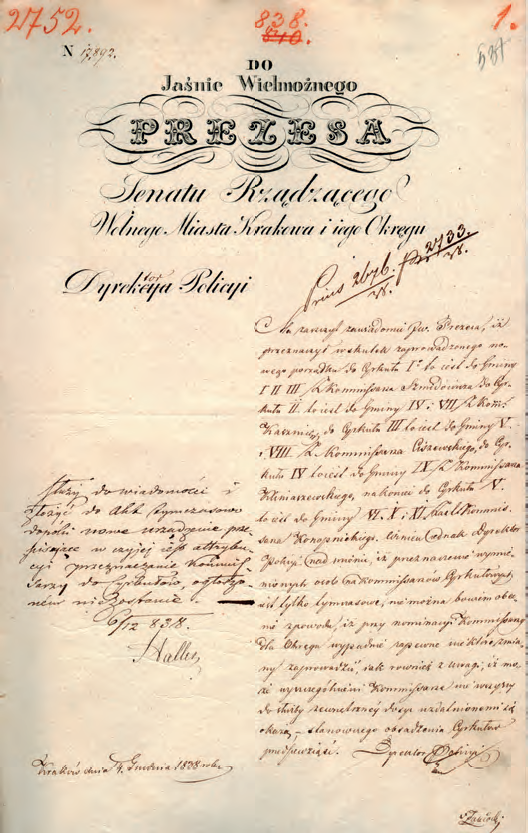 2752.
838.
810.
1.
537
N 17,892.
DO
Jaśnie Wielmożnego
PREZESA
Senatu Rządzącego
Wolnego Miasta Krakowa i iego Okręgu
Dyrektor Policyi
Prius 2676. 2733.
Ma zaszczyt zawiadomić Jw. Prezesa, iż
przeznaczył w skutek zaprowadzonego no-
wego porządku do Cyrkułu I° to iest do Gminy
I II III Kommissarza do Cyr-
kułu II to iest do Gminy IV i VII
do Cyrkułu III to iest do Gminy V.
i VIII Kommissarza Ciszewskiego, do Cyr-
kułu IV to iest do Gminy IX Kommissarza
na koniec do Cyrkułu V.
to iest do Gminy VI. X i XI Kommis-
sarza Konopnickiego. Dyrektor
Policyi iż przeznaczenie wymie-
nionych osób na Kommissarzy Cyrkułowych
iest tylko tymczasowe, nie można bowiem
z powodu, iż przy nominacyi Kommissarzy
dla Okręgu wypadnie zapewne niektóre zmia-
ny zaprowadzić, iak również z uwagi, iż mo-
że wyszczególnieni Kommissarze nie wszyscy
do służby zewnętrznej dosyć uzdatnionemi się
okażą, – stanowczego obsadzenia Cyrkułów
przedsięwziąść. Dyrektor Policyi
Służy do wiadomości i
złożyć do Akt tymczasowo
dopóki nowe urządzenie prze-
pisujące w czyjej iest attrybu-
cyi przeznaczanie Kommis-
sarzy do Cyrkułów, ogłoszo-
nem nie zostanie
6/12 838.
Haller
Kraków dnia 4. Grudnia 1838 roku